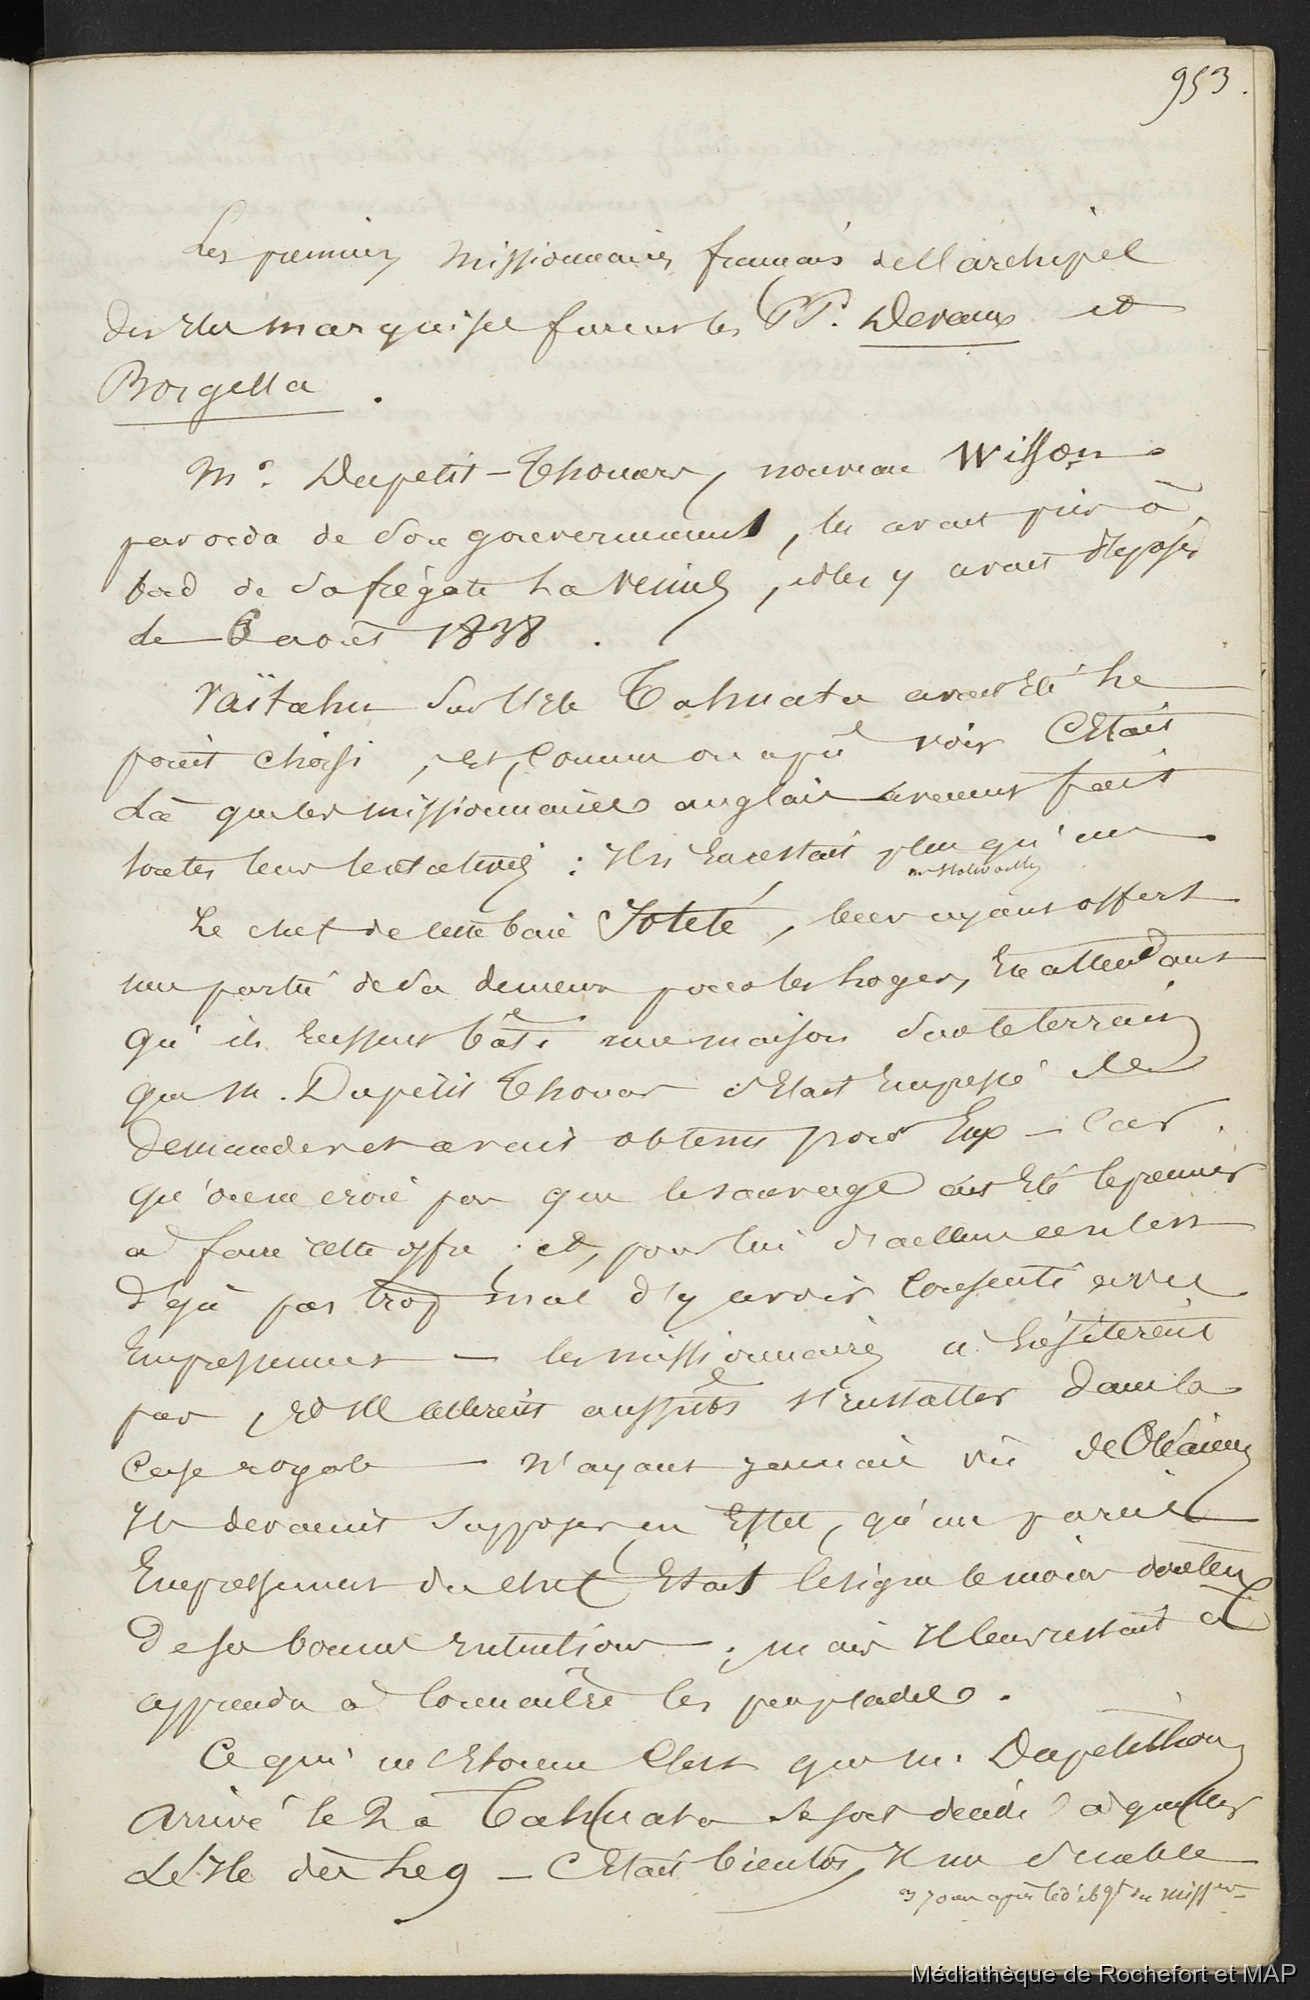 953.
Les premiers missionnaires français de l'archipel
des Iles marquises furent les PP. Devaux et
Borgella.
Mr. Dupetit-Thouars, nouveau Wilson
par ordre de son gouvernement, les avait pris à
bord de sa frégate La Vénus, et les y avait déposés
le 6 août 1838.
Vaïtahu sur l'Ile Tahuata avait été le
point choisi, et, comme on a pu voir C'était
Là que les missionnaires anglais avaient fait
toutes leurs tentatives : Il n'en restait plus qu'un
mr Stalworthy
Le chef de cette baie Iotété, leur ayant offert
une partie de sa demeure pour les loger, En attendant
qu'ils eussent bâti une maison sur le terrain
que M. Dupetit Thouars s'était empressé de
demander et avait obtenu pour Eux - Car
qu'on ne croie pas que le sauvage ait été le premier
à faire cette offre ; et, pour lui d'ailleurs c'est
déjà pas trop mal d'y avoir consenti avec
Empressement — les missionnaires n'hésitèrent
pas, et allèrent aussitôt s'installer dans la
Case royale — N'ayant jamais vu de Océaniens
Ils devaient supposer en Effet, qu'un pareil
Empressement du chef Etait le signe le moins douteux
De ses bonnes intentions ; mais Il leur restait à
apprendre à connaître les peuplades.
Ce qui m'étonne C'est que M. Dupetit thouars
arrivé le 2 à Tahuata se soit décidé à quitter
L'Ile dès Le 9 — C'était bientôt, Il me semble
3 jours après le débqt des missres